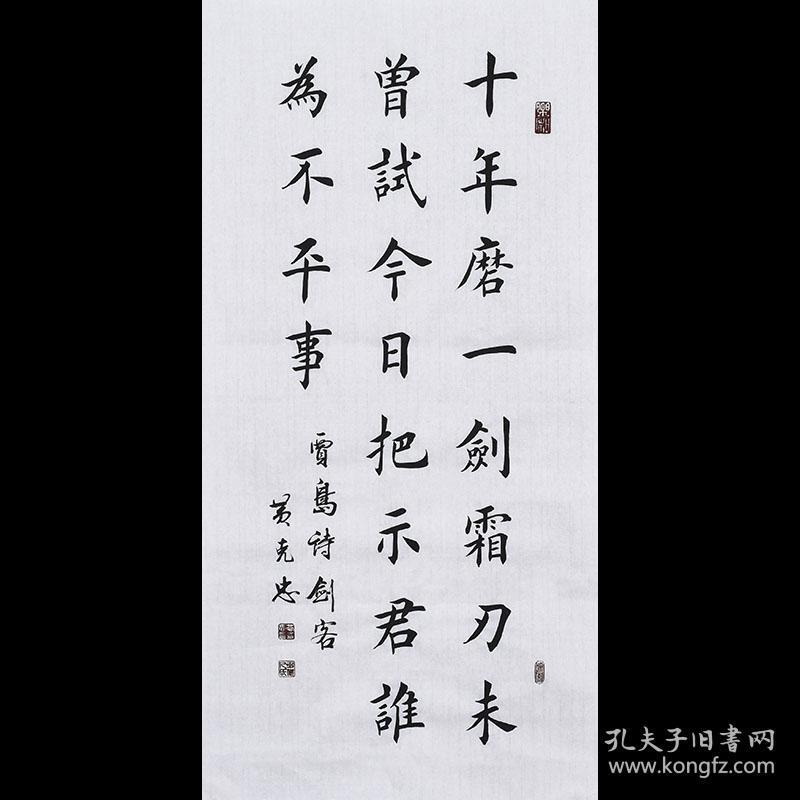 十年磨一劍霜刃未
曾試今日把示君誰
為不平事
賈島诗劍客
黄克忠
孔夫子旧书网
www.kongfz.com